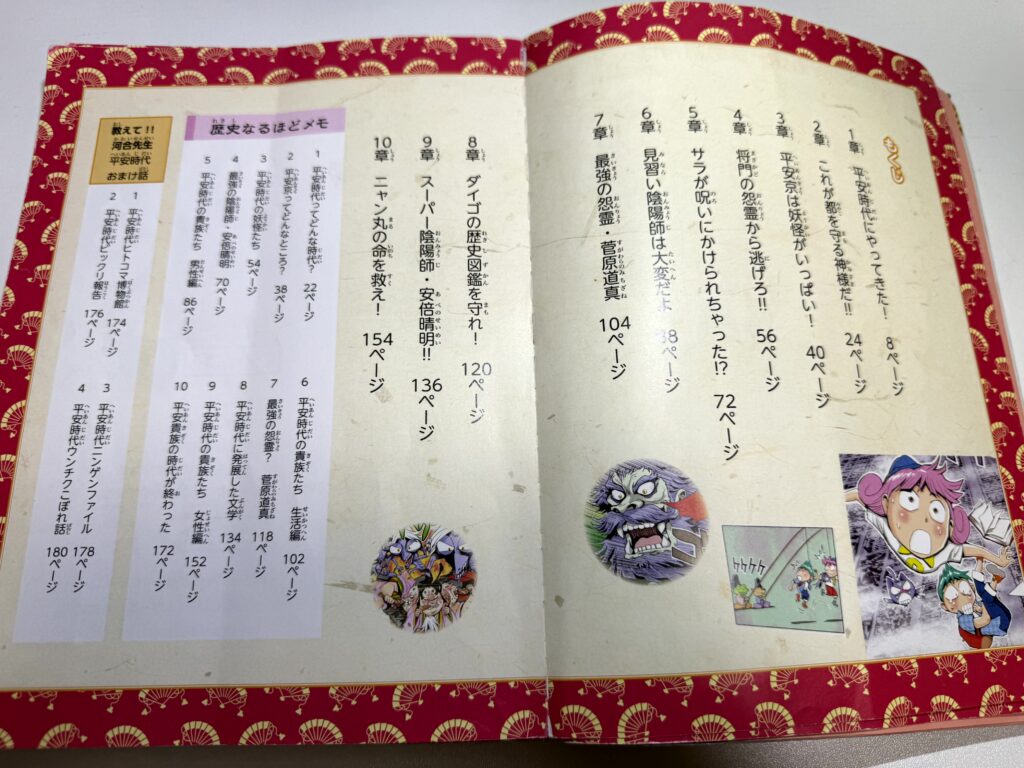 もくじ
1章 平安時代にやってきた! 8ページ
2章 これが都を守る神様だ!! 24ページ
3章 平安京は妖怪がいっぱい! 40ページ
4章 将門の怨霊から逃げろ!! 56ページ
5章 サラが呪いにかけられちゃった!? 72ページ
6章 見習い陰陽師は大変だよ 88ページ
7章 最強の怨霊・菅原道真 104ページ
8章 ダイゴの歴史図鑑を守れ! 120ページ
9章 スーパー陰陽師・安倍晴明!! 136ページ
10章 ニャン丸の命を救え! 154ページ
歴史なるほどメモ
1 平安時代ってどんな時代? 22ページ
2 平安京ってどんなところ? 38ページ
3 平安時代の妖怪たち 54ページ
4 最強の陰陽師・安倍晴明 70ページ
5 平安時代の貴族たち 男性編 86ページ
6 平安時代の貴族たち 生活編 102ページ
7 最強の怨霊? 菅原道真 118ページ
8 平安時代に発展した文学 134ページ
9 平安時代の貴族たち 女性編 152ページ
10 平安貴族の時代が終わった 172ページ
教えて!!
河合先生
平安時代
おまけ話
1 平安時代ヒトコマ博物館 174ページ
2 平安時代ビックリ報告 176ページ
3 平安時代ニンゲンファイル 178ページ
4 平安時代ウンチクこぼれ話 180ページ
ケケケケ